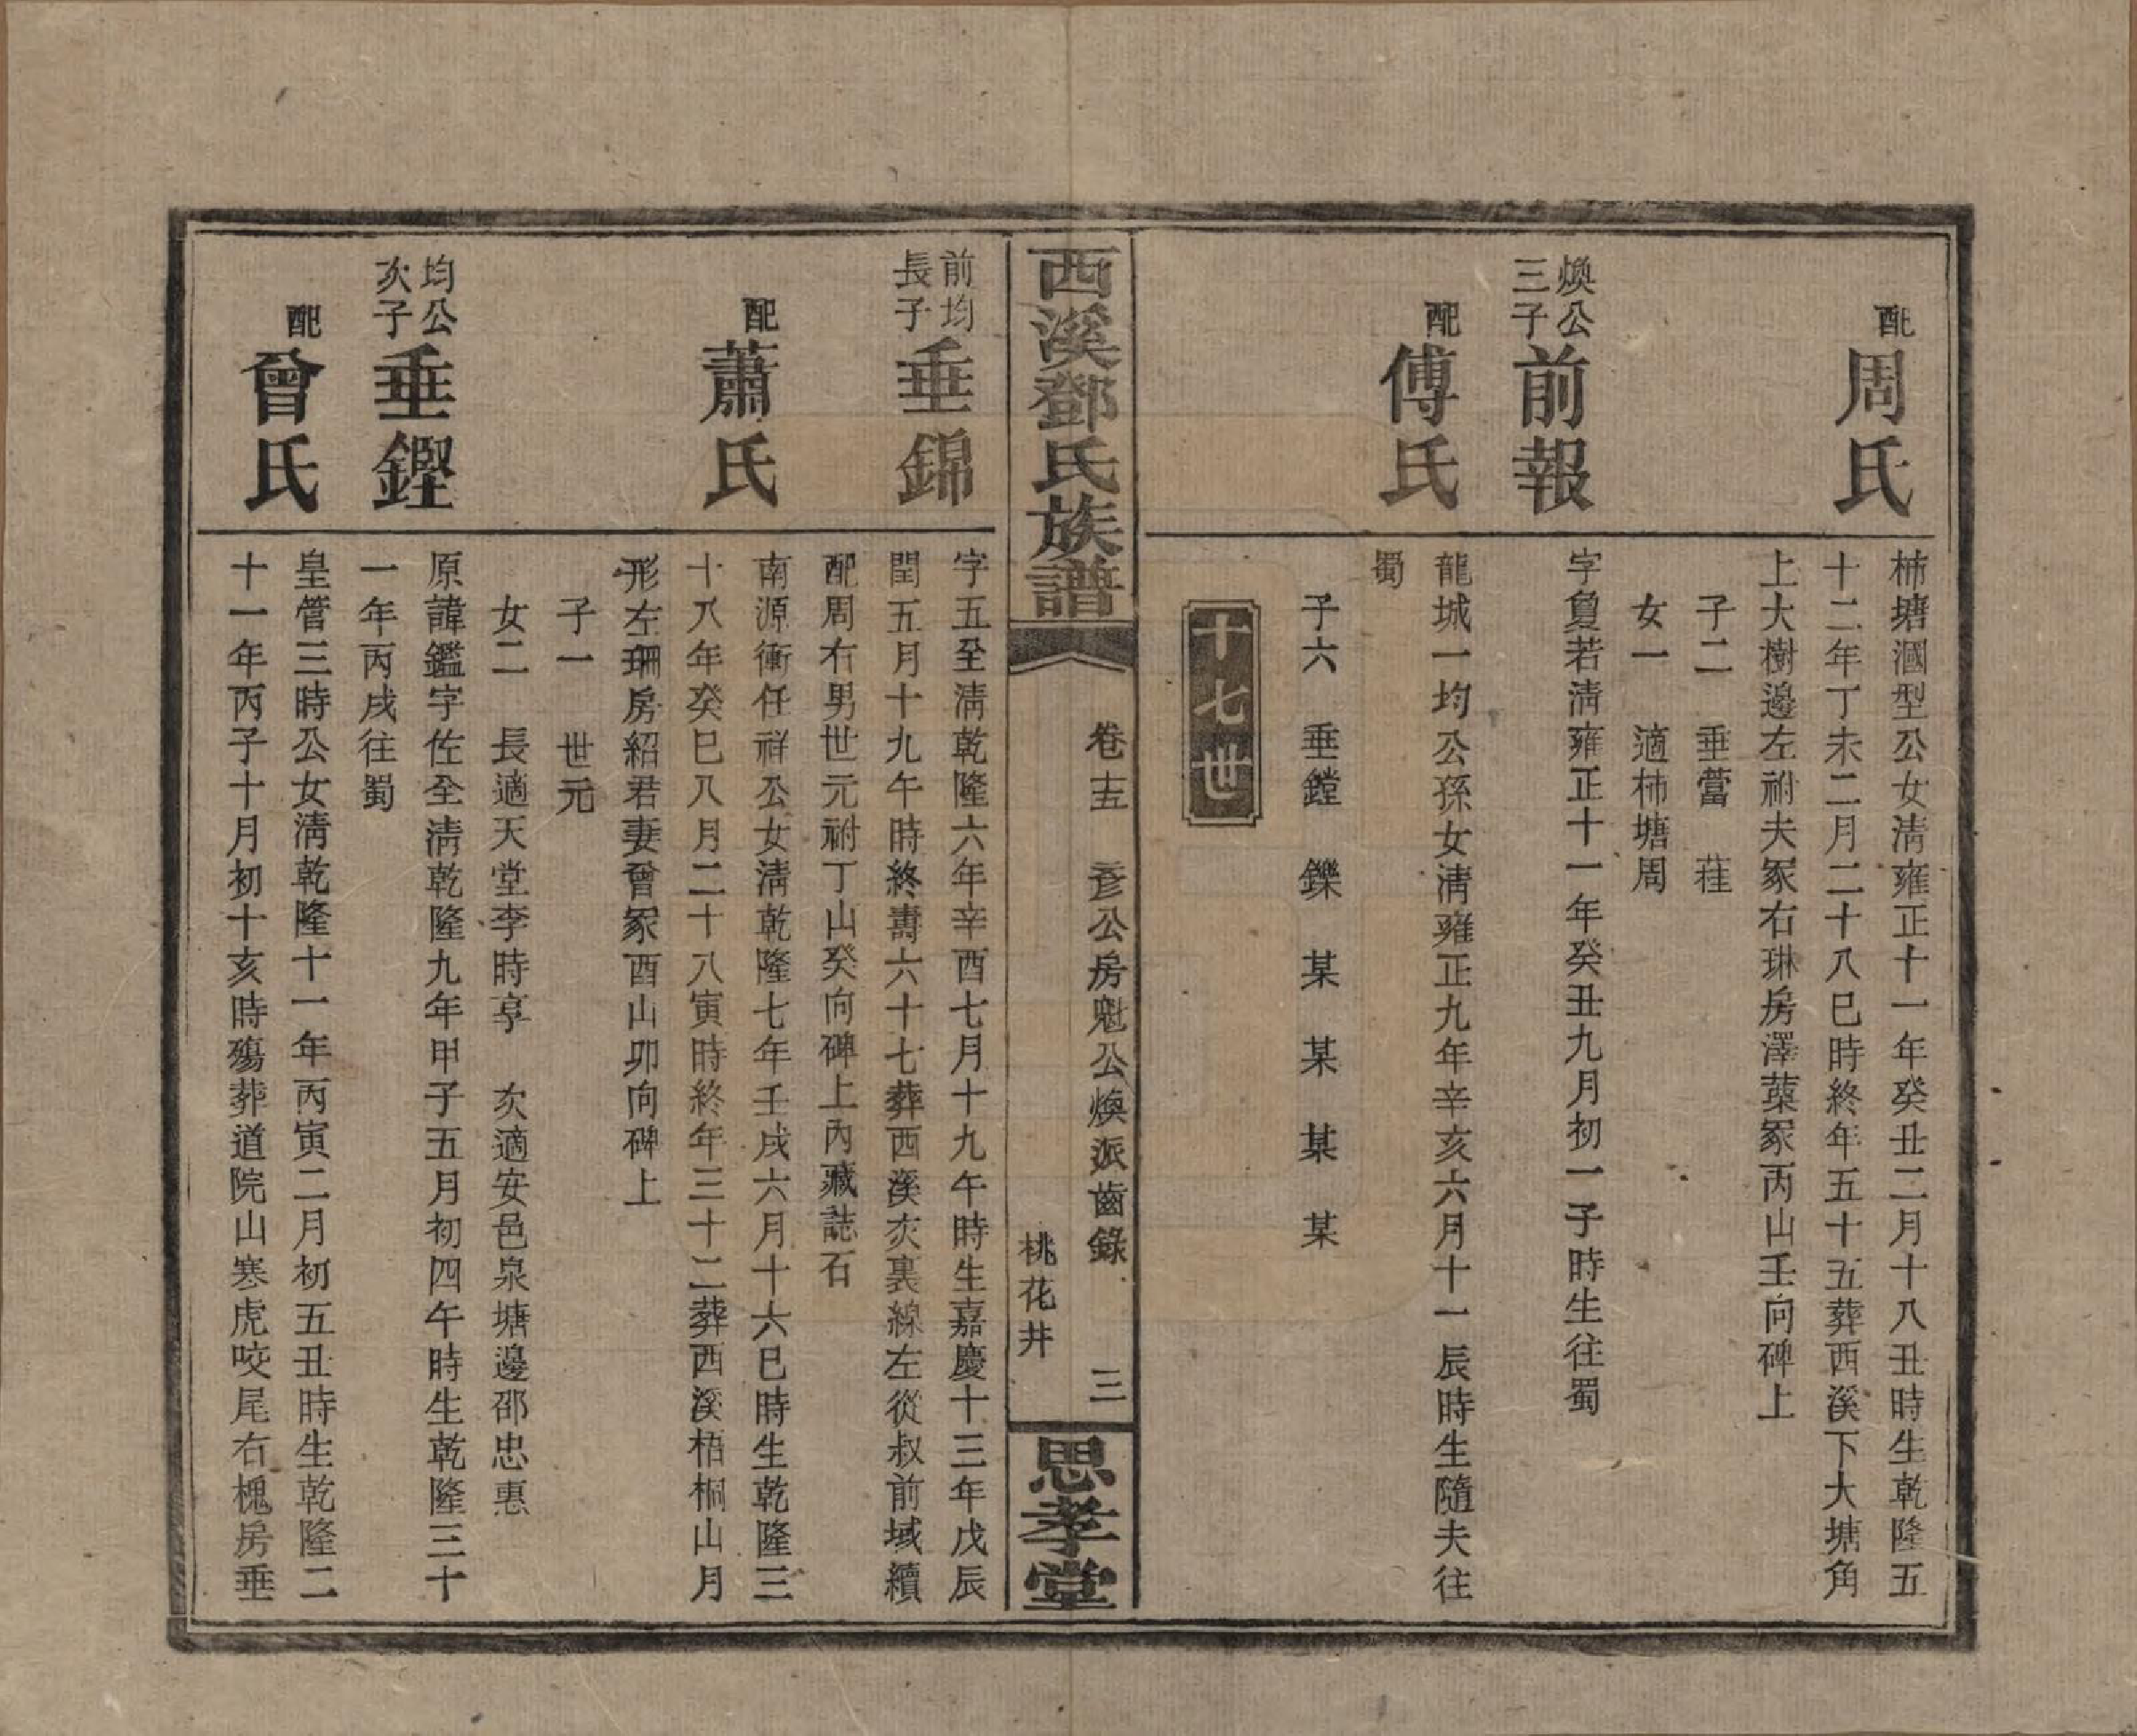 配
周氏
柿塘溷型公女淸雍正十一年癸丑二月十八丑時生乾隆五
十二年丁未二月二十八巳時終年五十五葬西溪下大塘角
上大樹邊左祔夫冢右琳房澤蘂冢丙山壬向碑上
子二 垂䥨 䓲
女一 適柿塘周
煥公
三子
前報
字負若淸雍正十一年癸丑九月初一子時生往蜀
配
傅氏
龍城一均公孫女淸雍正九年辛亥六月十一辰時生隨夫往
蜀
子六 垂鏜 鑠 某 某 某 某
十七世
西溪鄧氏族譜
卷十五 彥公房魁公煥派齒錄 三
桃花井
思孝堂
前均
長子
垂錦
字五至淸乾隆六年辛酉七月十九午時生嘉慶十三年戊辰
閏五月十九午時終壽六十七葬西溪亥裏線左從叔前域續
配周右男世元祔丁山癸向碑上內藏誌石
配
蕭氏
南源衝任祥公女淸乾隆七年壬戌六月十六巳時生乾隆三
十八年癸巳八月二十八寅時終年三十二葬西溪梧桐山月
形左珊房紹君妻曾冢酉山卯向碑上
子一 世元
女二 長適天堂李時享 次適安邑泉塘邊邵忠惠
均公
次子
垂鏗
原諱鑑字佐全淸乾隆九年甲子五月初四午時生乾隆三十
一年丙戌往蜀
配
曾氏
皇管三時公女淸乾隆十一年丙寅二月初五丑時生乾隆二
十一年丙子十月初十亥時殤葬道院山寒虎咬尾右槐房垂